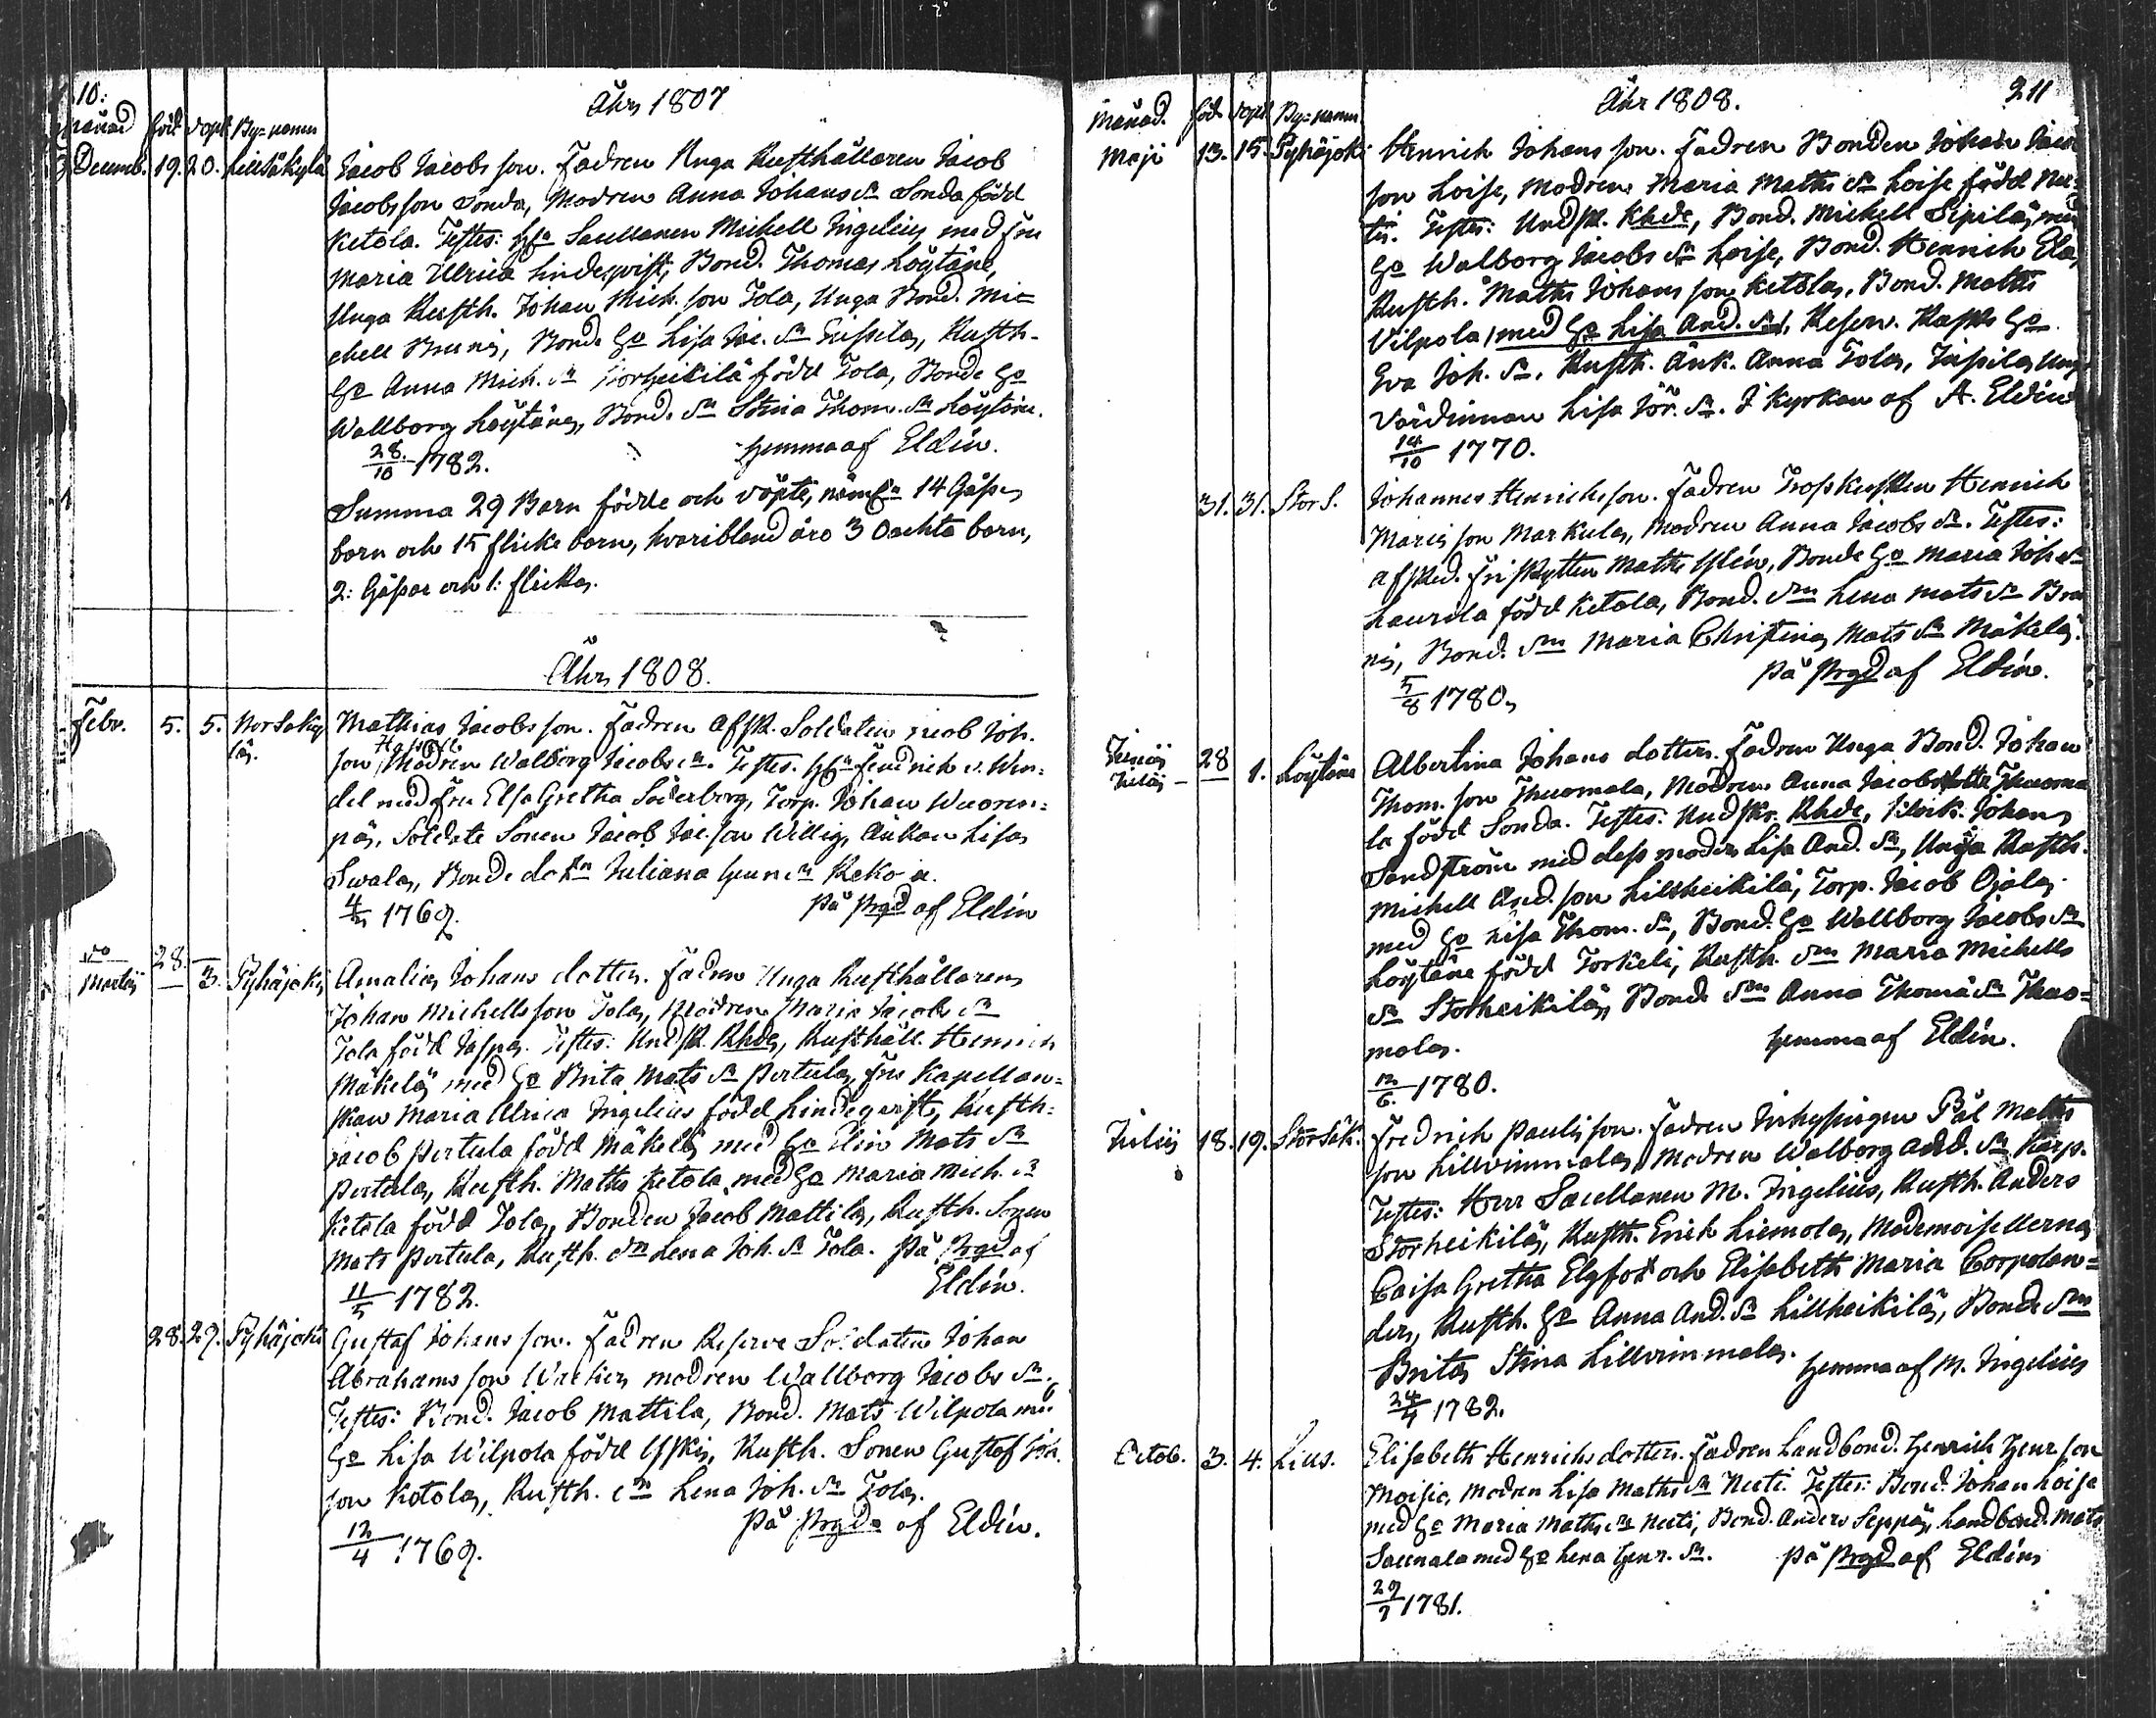 10:
Åhr 1807
Månad föd döpt By=namn
Decemb. 19. 20. Lillsäkylä Jacob Jacobs son. Fadren Unga Rusthållaren Jacob
Jacobsson Sonda, Modren Anna Johans dr Sonda född
Ketola. Testes: Sacellanen Michell Ingelius med fru
Maria Ulrica Lindeqvist, Bond. Thomas Löytäne,
Unga Rusth. Johan Mick. son Tola, Unga Bond. Mi=
chell Bruni, Bond. Ho Lisa Jac. dr Jussila, Rusth.
Ho Anna Mich. dr Storheikilä född Tola, Bonde Ho
Wallborg Löytäne, Bond. dr Stina Thom. dr Löytäne.
28/10 1782. hemma af Eldin.
Summa 29 Barn födde och döpte, näml. 14 Gåsse
barn och 15 flicke barn, hvaribland äro 3 Oächta barn,
2: Gåssar och 1: flicka.
Åhr 1808.
Febr. 5. 5. Norsäky Mathias Jacobs son. Fadren Afsk. Soldaten Jacob Joh.
lä. son Modren Walborg Jacobs dr. Testes. Fendrich v. Wen=
del med fru Elsa Gretha Söderberg, Torp. Johan Wuoren=
pä, Soldate Sonen Jacob Jac. son Willig, Änkan Lisa
Swala, Bonde dottn Juliana Henr. dr Reko a.
1769. På Prgd af Eldin
do 28. —
Martii — 3. Pyhäjoki Amalia Johans dotter. Fadren Unga Rusthållaren
Johan Michellsson Tola, Modren Maria Jacobs dr
Tola född Jaspa. Testes: Undsk. Rhde, Rusthåll. Hennich
Mäkelä med Ho Brita Mats dr Pertula, Fru Kapellan=
skan Maria Ulrica Ingelius född Lindeqvist, Rusth.
Jacob Pertula född Mäkelä med Ho Elin Mats dr
Pertula, Rusth. Maths Ketola med Ho Maria Mich. dr
Ketola född Tola, Bonden Jacob Mattila, Rusth. Sonen
Mats Pertula, Rusth. dr Lena Joh. dr Tola. På Prgd af
11/5 1782. Eldin.
28. 29. Pyhäjoki Gustaf Johans son. Fadren Reserve Soldaten Johan
Abrahamsson modren Wallborg Jacobs dr.
Testes: Bond. Jacob Mattila, Bond. Mats Wilpola med
Ho Lisa Wilpola född Yski, Rusth. Sonen Gustaf Joh.
son Ketola, Rusth. dr Lena Joh. dr Tola.
12/4 1769. På Prgd af Eldin.
Åhr 1808. 211
Månad. föd. döpt By=namn
Maji 13. 15. Pyhäjoki Hennich Johans son. Fadren Bonden Johan Jacob
son Loise, Modren Maria Maths dr Loise född Nee=
ti. Testes: Undsk. Rhde, Bond. Michell Sipilä, med
Ho Walborg Jacobs dr Loise, Bond. Hennich Ela,
Rusth. Maths Johans son Ketola, Bond. Maths
Vilpola, med Ho Lisa And. dr, Reserv. Ho
Eva Joh. dr. Rusth. Änk. Anna Tola, Jussila Unga
Värdinnan Lisa Jör. dr. I Kyrkan af A. Eldin
14/10 1770.
31. 31. Stor S. Johannes Hennichsson. Fadren Trosskusken Hennich
Maris son Markula, Modren Anna Jacobs dr. Testes:
Afsked. Friskytten Maths Ylén, Bonde Ho Maria Joh dr
Laurila född Ketola, Bond. drn Lena Mats dr Bru
ni, Bond. drn Maria Christina Mats dr Mäkelä.
5/8 1780. På Prgd af Eldin.
Junii 28
Julii — 1. Löytäne Albertina Johans dotter. Fadren Unga Bond. Johan
Thom. son Thuomola, Modren Anna Jacobs dotter Thuomo
la född Sonda. Testes: Undsk. Rhde, Johan
Sandström med dess moder Lisa And. dr, Unga Rusth.
Michell And. son Lillheikilä, Torp. Jacob Ojala
med Ho Lisa Thom. dr, Bond. Ho Wallborg Jacobs dr
Löytäne född Torkeli, Rusth. drn Maria Michells
dr Storheikilä, Bond drn Anna Thomä dr Thuo=
mola. hemma af Eldin.
12/6 1780.
Julii 18. 19. Stor Säk. Fredrich Pauls son. Fadren Inhysingen Pål Maths
son Lillvimmala, Modren Walborg And. dr Karp.
Testes: Herr Sacellanen M. Ingelius, Rusth. Anders
Storheikilä, Rusth. Erich Liemola, Mademoisellerna
Caisa Gretha Elgfot och Elisabeth Maria Corpolan=
der, Rusth. Ho Anna And. dr Lillheikilä, Bonde drn
Brita Stina Lillvimmala. hemma af M. Ingelius
24/4 1782.
Octob. 3. 4. Lius. Elisabeth Henrichs dotter. Fadren Landbond. Henrich Henr. son
Moisio, modren Lisa Maths dr Neeti. Testes: Bond. Johan Loise
med Ho Maria Maths dr Neeti, Bond. Anders Seppä, Landbond. Mats
Saunala med Ho Lena Henr. dr. På Prgd af Eldin
29/7 1781.